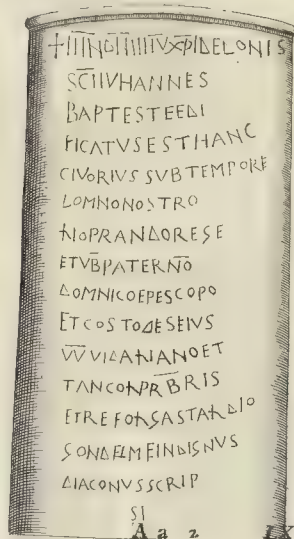 SCIIVHANNES
BAPTESTEEDI
FICATVSESTHANC
CIVORIVS SVBTEMPORE
DOMNONOSTRO
LIOPRANDORESE
ETVBPATERNO
DOMNICOEPESCOPO
ETCOSTODESEIVS
VVVIDALIANOET
TANCOLPRBRIS
ETREFOLSASTALDIO
GONDELMEINDIGNVS
DIACONVSSCRIP
SI
A a 2 IX